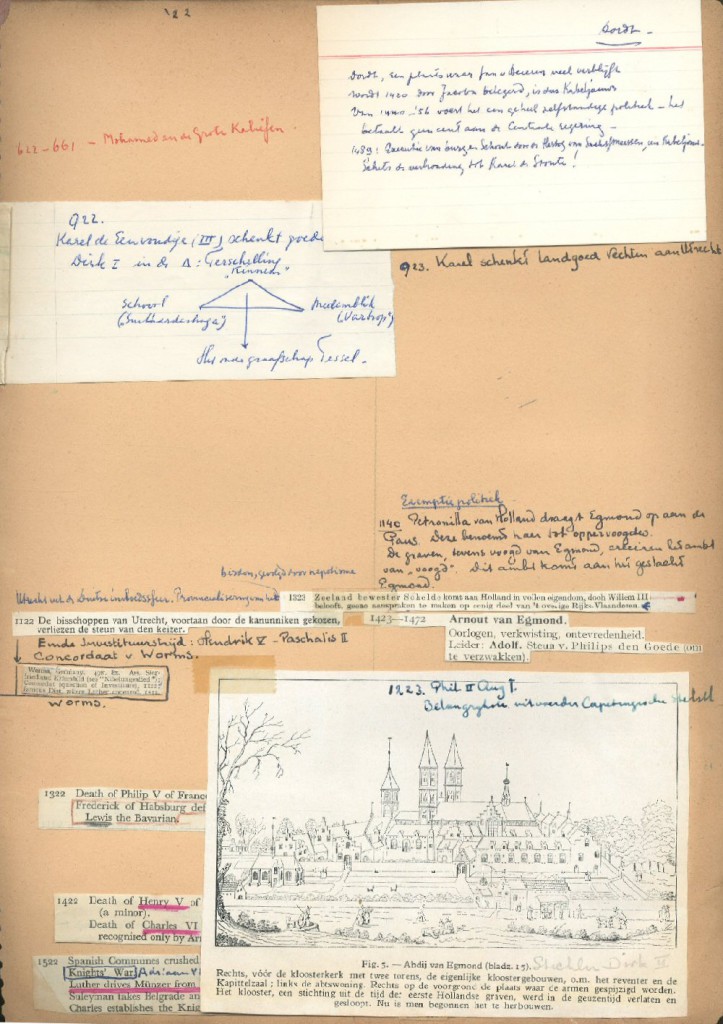 '22
Dordt -
Dordt, een plaats waar Jan v Beieren veel verblijft
wordt 1420 door Jacoba belegerd, is dus Kabeljauws
Van 1440-'56 voert het een geheel zelfstandige politiek - het
betaalt geen cent aan de Centrale regering -
1489: Executie van burg en Schout door de Hertog van Saksen, een Kabeljauw.
Schets de verhouding tot Karel de Stoute!
622-661 - Mohamed en de Grote Kaliefen.
922.
Karel de Eenvoudige (III) schenkt goede
Dirk I in de Δ: Terschelling
"Kinnem"
Schoorl
Medemblik
("Vartrop")
Het oude graafschap Tessel.
923. Karel schenkt Landgoed Vechten aan Utrecht
Exemptie politiek
1140 Petronilla van Holland draagt Egmond op aan de
Paus. Deze benoemt haar tot oppervoogdes.
De graven, tevens voogd van Egmond, creëren het ambt
van "voogd". Dit ambt komt aan het geslacht
Egmond.
1323 Zeeland bewester Schelde komt aan Holland in vollen eigendom, doch Willem III
belooft, geene aanspraken te maken op eenig deel van 't overige Rijks-Vlaanderen.
1122 De bisschoppen van Utrecht, voortaan door de kanunniken gekozen,
verliezen de steun van den keizer.
Einde Investituurstrijd: Hendrik V - Paschalis II
Concordaat v Worms.
Worms.
1423—1472 Arnout van Egmond.
Oorlogen, verkwisting, ontevredenheid.
Leider: Adolf. Steun v. Philips den Goede (om
te verzwakken).
1223. Phil II Aug †.
Belangrijkste uitvoerder Capetingische
1322 Death of Philip V of Franc
Frederick of Habsburg def
Lewis the Bavarian.
1422 Death of Henry V of
(a minor).
Death of Charles VI
recognized only by Ar
1522 Spanish Communes crushed
Knights' War. Adriaan VI
Luther drives Münzer from
Suleyman takes Belgrade an
Charles establishes the Knig
Fig. 5. — Abdij van Egmond (bladz. 15). Stichter Dirk II
Rechts, vóór de kloosterkerk met twee torens, de eigenlijke kloostergebouwen, o.m. het reventer en de
Kapittelzaal; links de abtswoning. Rechts op de voorgrond de plaats waar de armen gespijzigd werden.
Het klooster, een stichting uit de tijd der eerste Hollandse graven, werd in de geuzentijd verlaten en
gesloopt. Nu is men begonnen het te herbouwen.